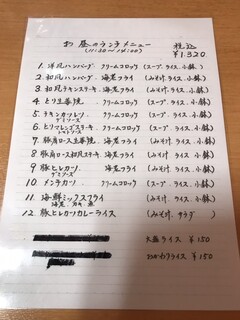 お昼のランチメニュー 税込
(11:30~14:00) ¥1,320
1. 洋風ハンバーグ クリームコロッケ (スープ, ライス, 小鉢)
2. 和風ハンバーグ 海老フライ (みそ汁, ライス, 小鉢)
3. 和風チキンステーキ 海老フライ (みそ汁, ライス, 小鉢)
4. とり生姜焼 クリームコロッケ (スープ, ライス, 小鉢)
5. チキンカツレツ クリームコロッケ (スープ, ライス, 小鉢)
デミソース
6. とりマレンゴステーキ クリームコロッケ (スープ, ライス, 小鉢)
トマトソース
7 豚肩ロース生姜焼 海老フライ (みそ汁, ライス, 小鉢)
8 豚肩ロース和風ステーキ 海老フライ (みそ汁, ライス, 小鉢)
9 豚ヒレカツ 海老フライ (みそ汁, ライス, 小鉢)
デミソース
10. メンチカツ クリームコロッケ (スープ, ライス, 小鉢)
11 海鮮ミックスフライ (みそ汁, ライス, 小鉢)
海老
12 豚ヒレカツカレーライス (みそ汁, サラダ)
大盛ライス ¥150
おかわりライス ¥150